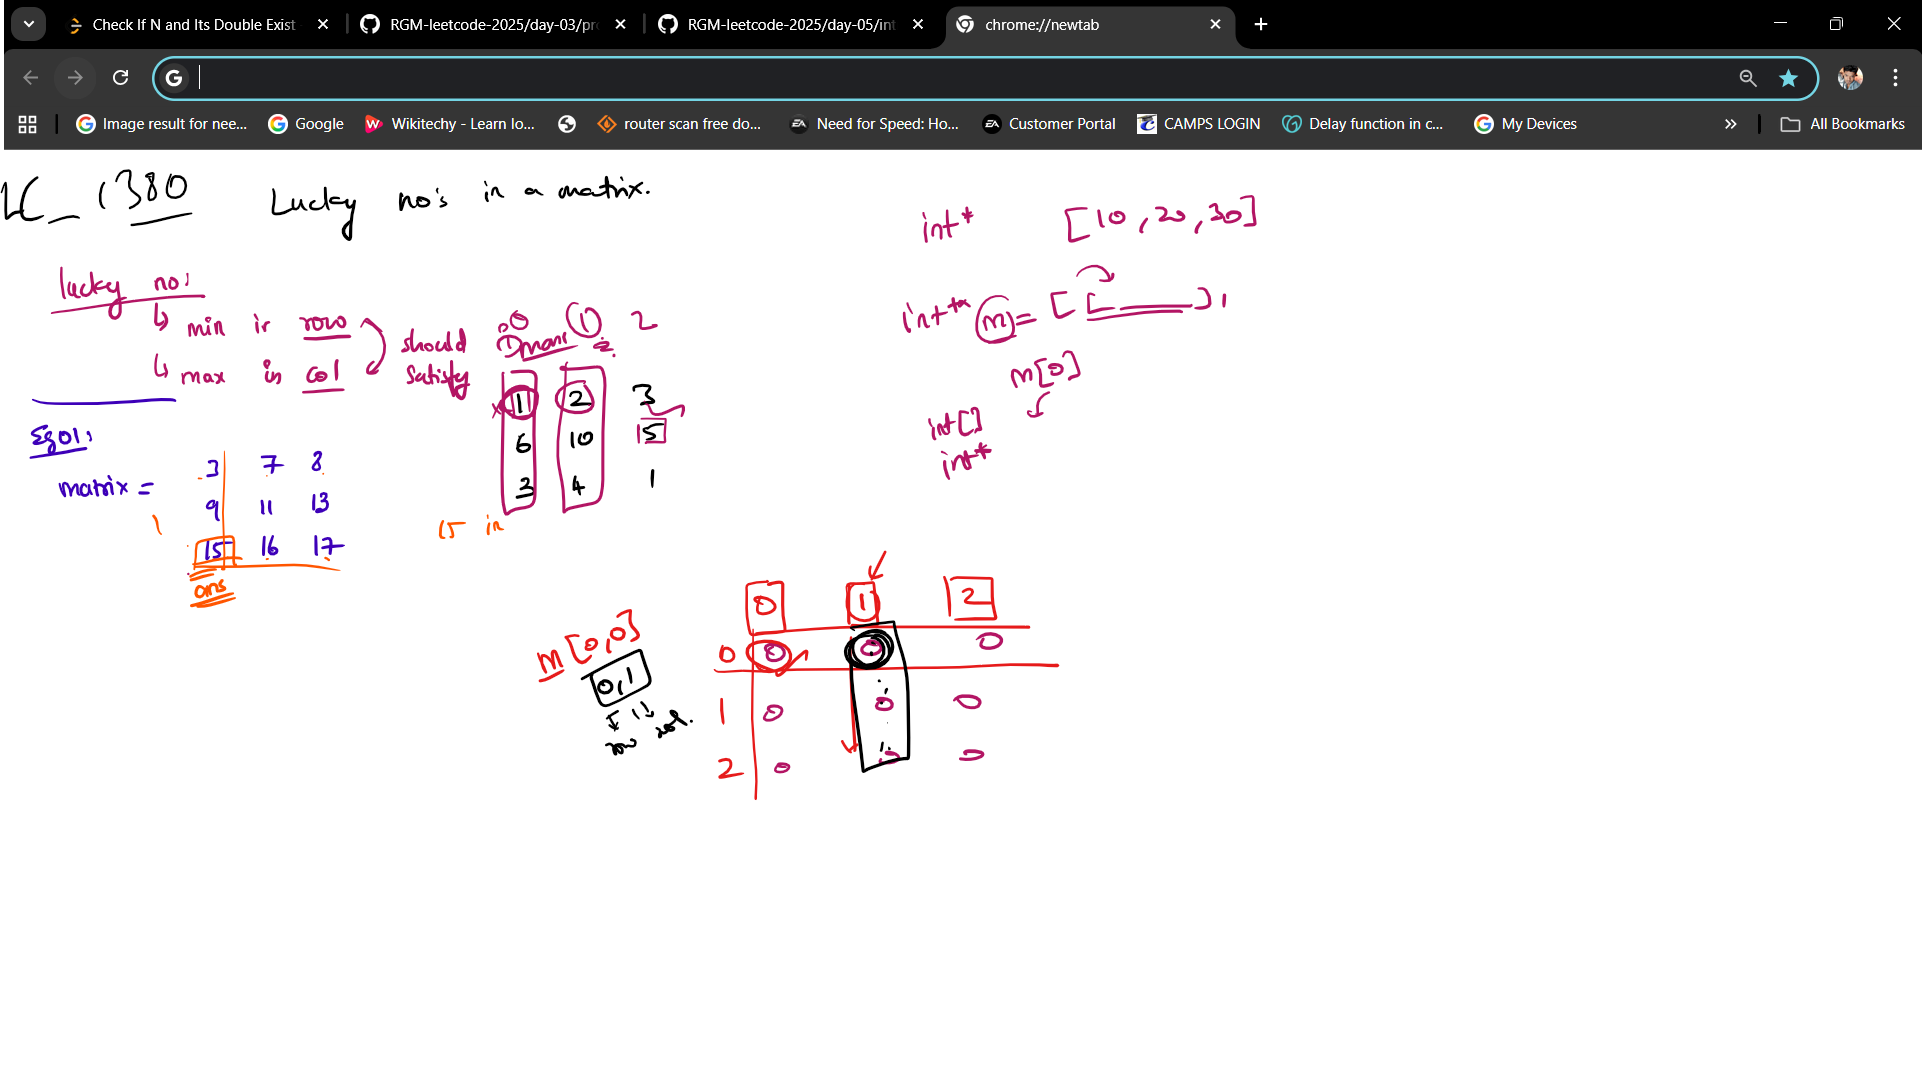 Check If N and Its Double Exist
RGM-leetcode-2025/day-03/pr
RGM-leetcode-2025/day-05/int
chrome://newtab
Image result for nee...
Google
Wikitechy - Learn lo...
router scan free do...
Need for Speed: Ho...
Customer Portal
CAMPS LOGIN
Delay function in c...
My Devices
All Bookmarks
LC_1380 Lucky no's in a matrix.
int* [10, 20, 30]
lucky no:
min in row
max in col
should
satisfy
0 1 2
1 2 3
6 10 15
3 4 1
int** m = [ [ ] ,
m[0]
int[]
int*
Eg01:
matrix =
3 7 8
9 11 13
15 16 17
ans
15 in
m[0,0]
0,1
row col.
0 1 2
0 0 0 0
1 0 0 0
2 0 0 0